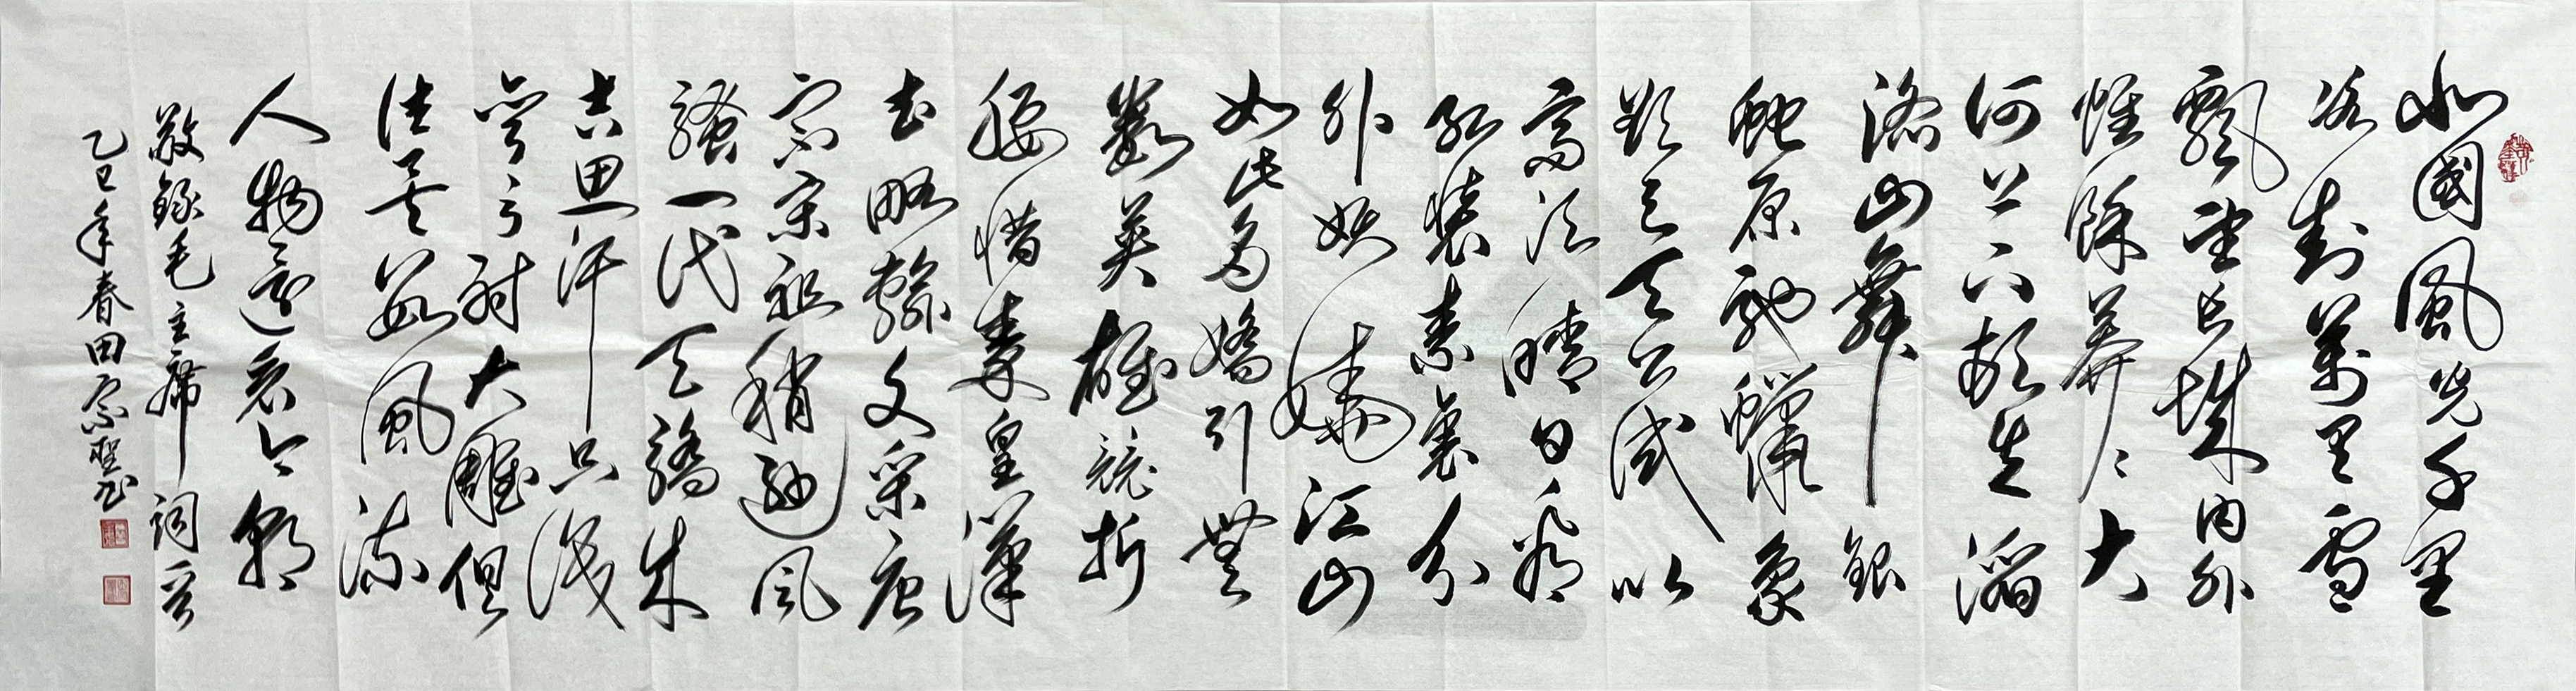 北國風光千里
冰封萬里雪
飄望長城内外
惟餘莽〻大
河上下頓失滔
滔山舞銀
蛇原馳蠟象
欲与天公试比
高須晴日看
紅裝素裹分
外妖嬈江山
如此多嬌引無
數英雄競折
腰惜秦皇漢
武略輸文采唐
宗宋祖稍遜風
騷一代天驕成
吉思汗只識
彎弓射大雕俱
往矣數風流
人物還看今朝
敬錄毛主席詞一首
乙巳年春田宗聖书